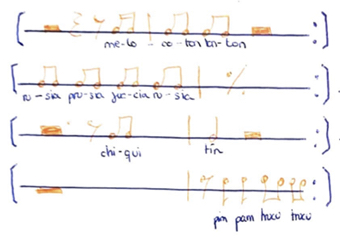 me-lo - co-ton ton-ton
ru-sia pru-sia suc-cia ru-sia
chi-qui tín
pim pam trucu trucu